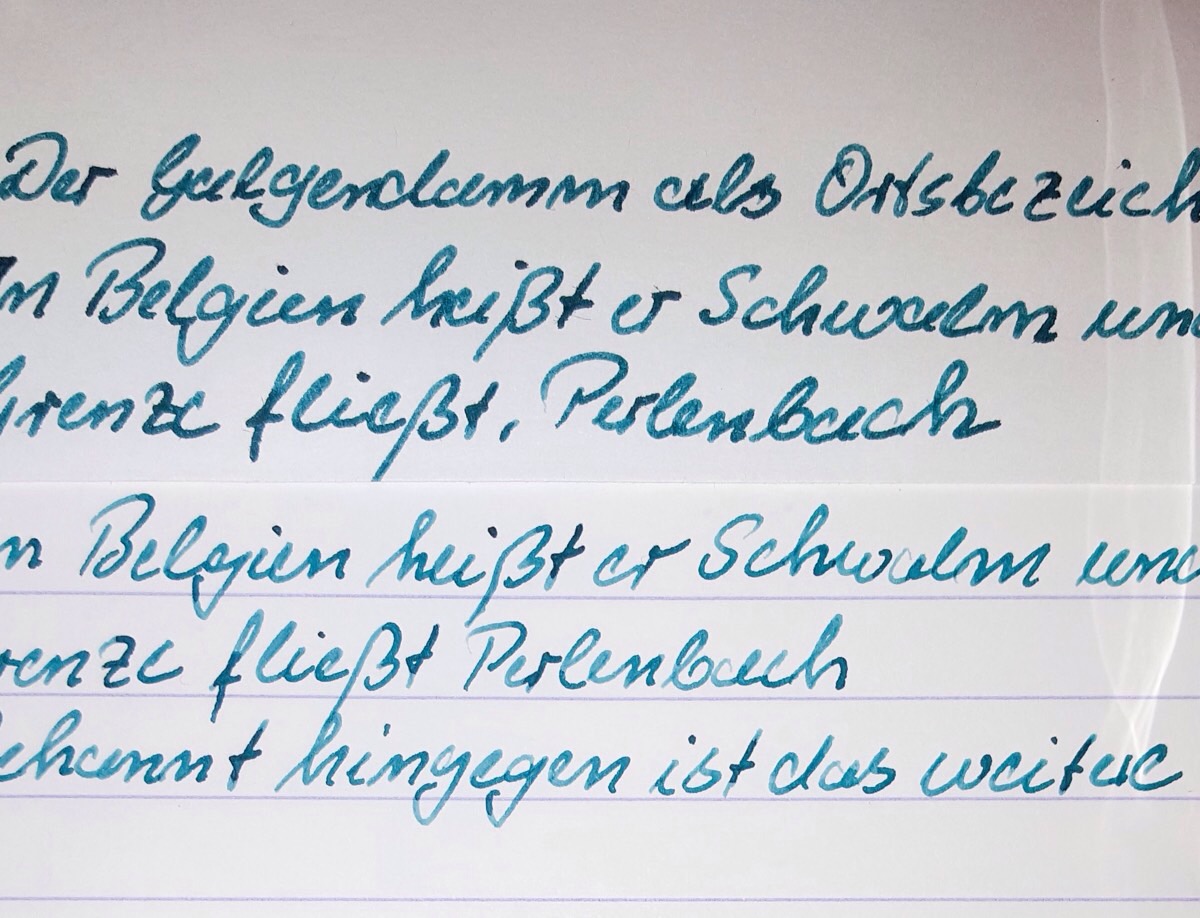 Der Galgendamm als Ortsbezeich
In Belgien heißt er Schwalm un
Grenze fließt, Perlenbach
n Belgien heißt er Schwalm und
renze fließt Perlenbach
ekannt hingegen ist das weitere